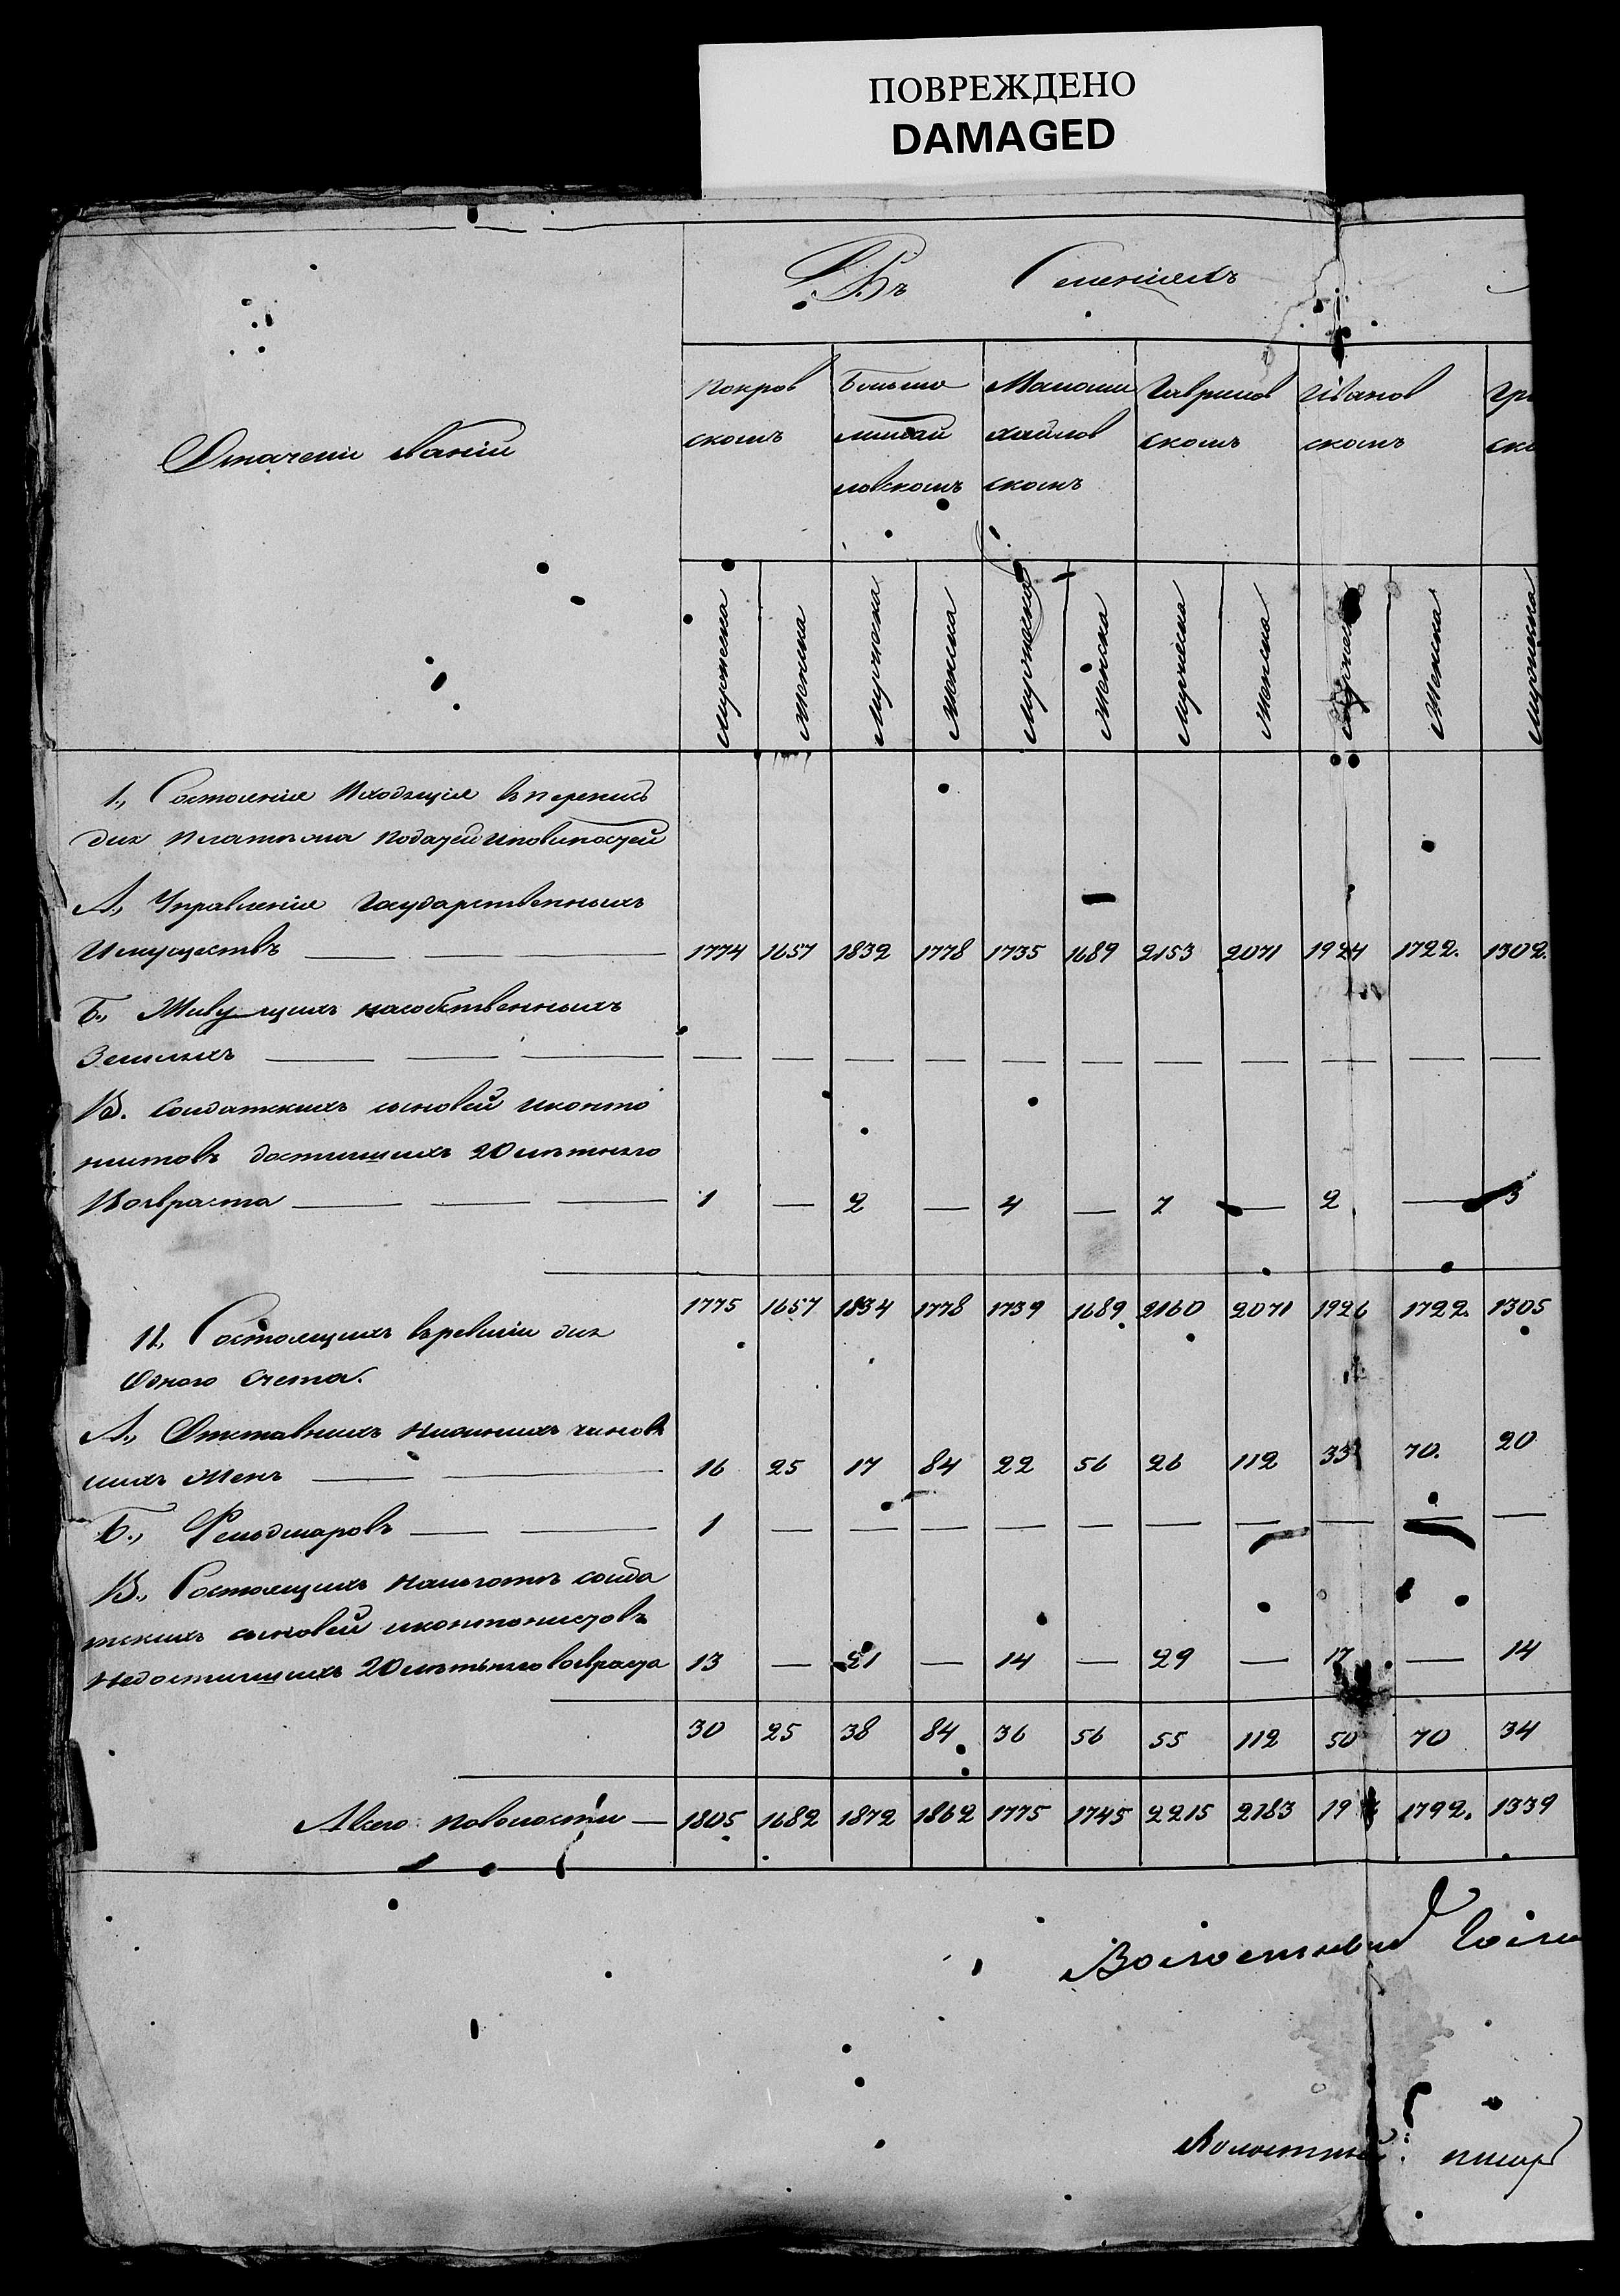 ПОВРЕЖДЕНО
DAMAGED
Въ Селеніяхъ
Означеніе званій
Покров Больше Маломи Гаврилов Иванов Гри
скомъ михай хайлов скомъ скомъ ско
ловскомъ скомъ
мужеска женска мужеска женска мужеска женска мужеска женска мужеска женска мужеска
1., Состоянія входящія въ перепись
для платежа податей и повиностей
А., Управленія Государственныхъ
Имуществъ — — — 1774 1657 1832 1778 1735 1689 2153 2071 1924 1722. 1302.
Б., Живущихъ на собственныхъ
Земляхъ — — — — — — — — — — — — — —
В. Солдатскихъ сыновей и канто
нистовъ достигшихъ 20 лѣтняго
Возвраста — — — 1 — 2 — 4 — 7 — 2 — 3
1775 1657 1834 1778 1739 1689 2160 2071 1926 1722. 1305
11., Состоящихъ въ ревизіи для
Одного Счета.
А., Отставныхъ нижнихъ чиновъ
ихъ Женъ — — 16 25 17 84 22 56 26 112 33 70. 20
Б., — — 1 — — — — — — — — — —
В., Состоящихъ на льготѣ солда
тскихъ сыновей и кантонистовъ
Недостигшихъ 20 лѣтняго возвраста 13 — 21 — 14 — 29 — 17 — 14
30 25 38 84 36 56 55 112 50 70 34
А всего по волости — 1805 1682 1872 1862 1775 1745 2215 2183 19 1792. 1339
Волостный Голо
Волостный писар